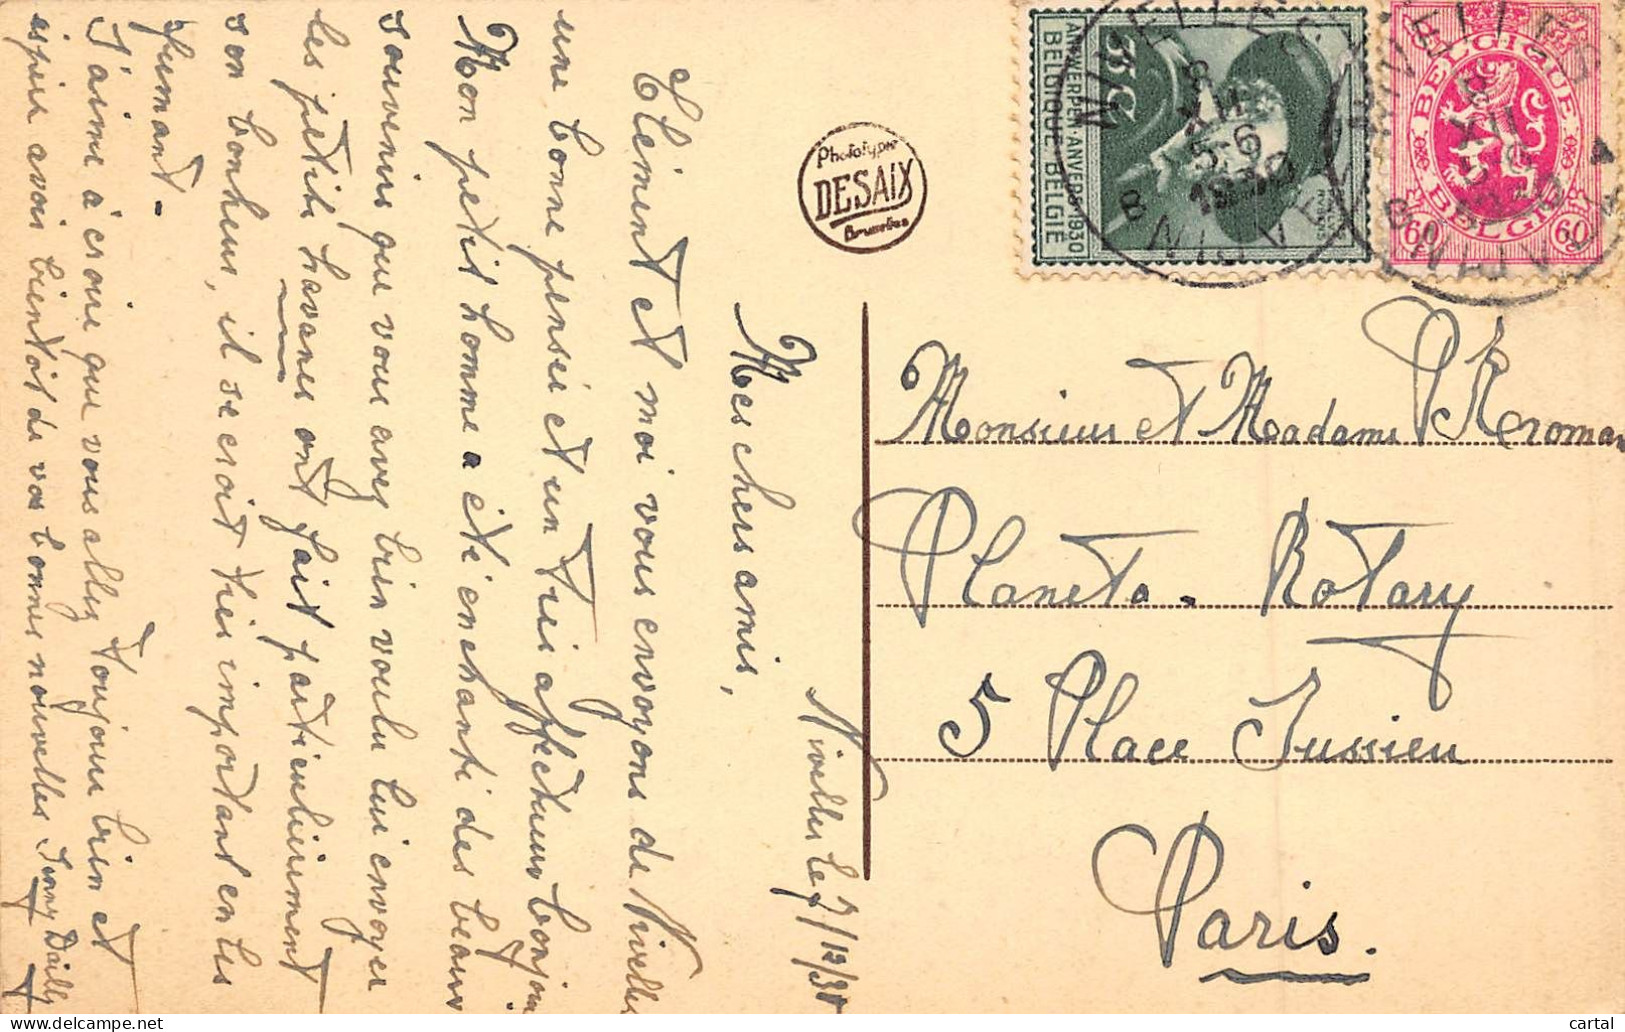 Nivelles le 7/12/30
Mes chers amis,
Clément et moi vous envoyons de Nivelles
une bonne pensée et un très affectueux bonjour
Mon petit homme a été enchanté des beaux
souvenirs que vous avez bien voulu lui envoyer
les petits havanes ont fait particulièrement
son bonheur, il se croit très important en les
fumant.
J'aime à croire que vous allez toujours bien et
espère avoir bientôt de vos bonnes nouvelles Jenny Dailly
Phototypie
DESAIX
Bruxelles
ANTWERPEN · ANVERS 1930
BELGIQUE BELGIË
35 C
BELGIQUE
BELGIË
60 60
NIVELLES
8
XII
5-6
1930
B NIJVEL B
NIVELLES
8
XII
1930
Monsieur et Madame Keroman
Planeta. Rotary
5 Place Jussieu
Paris.
cartal